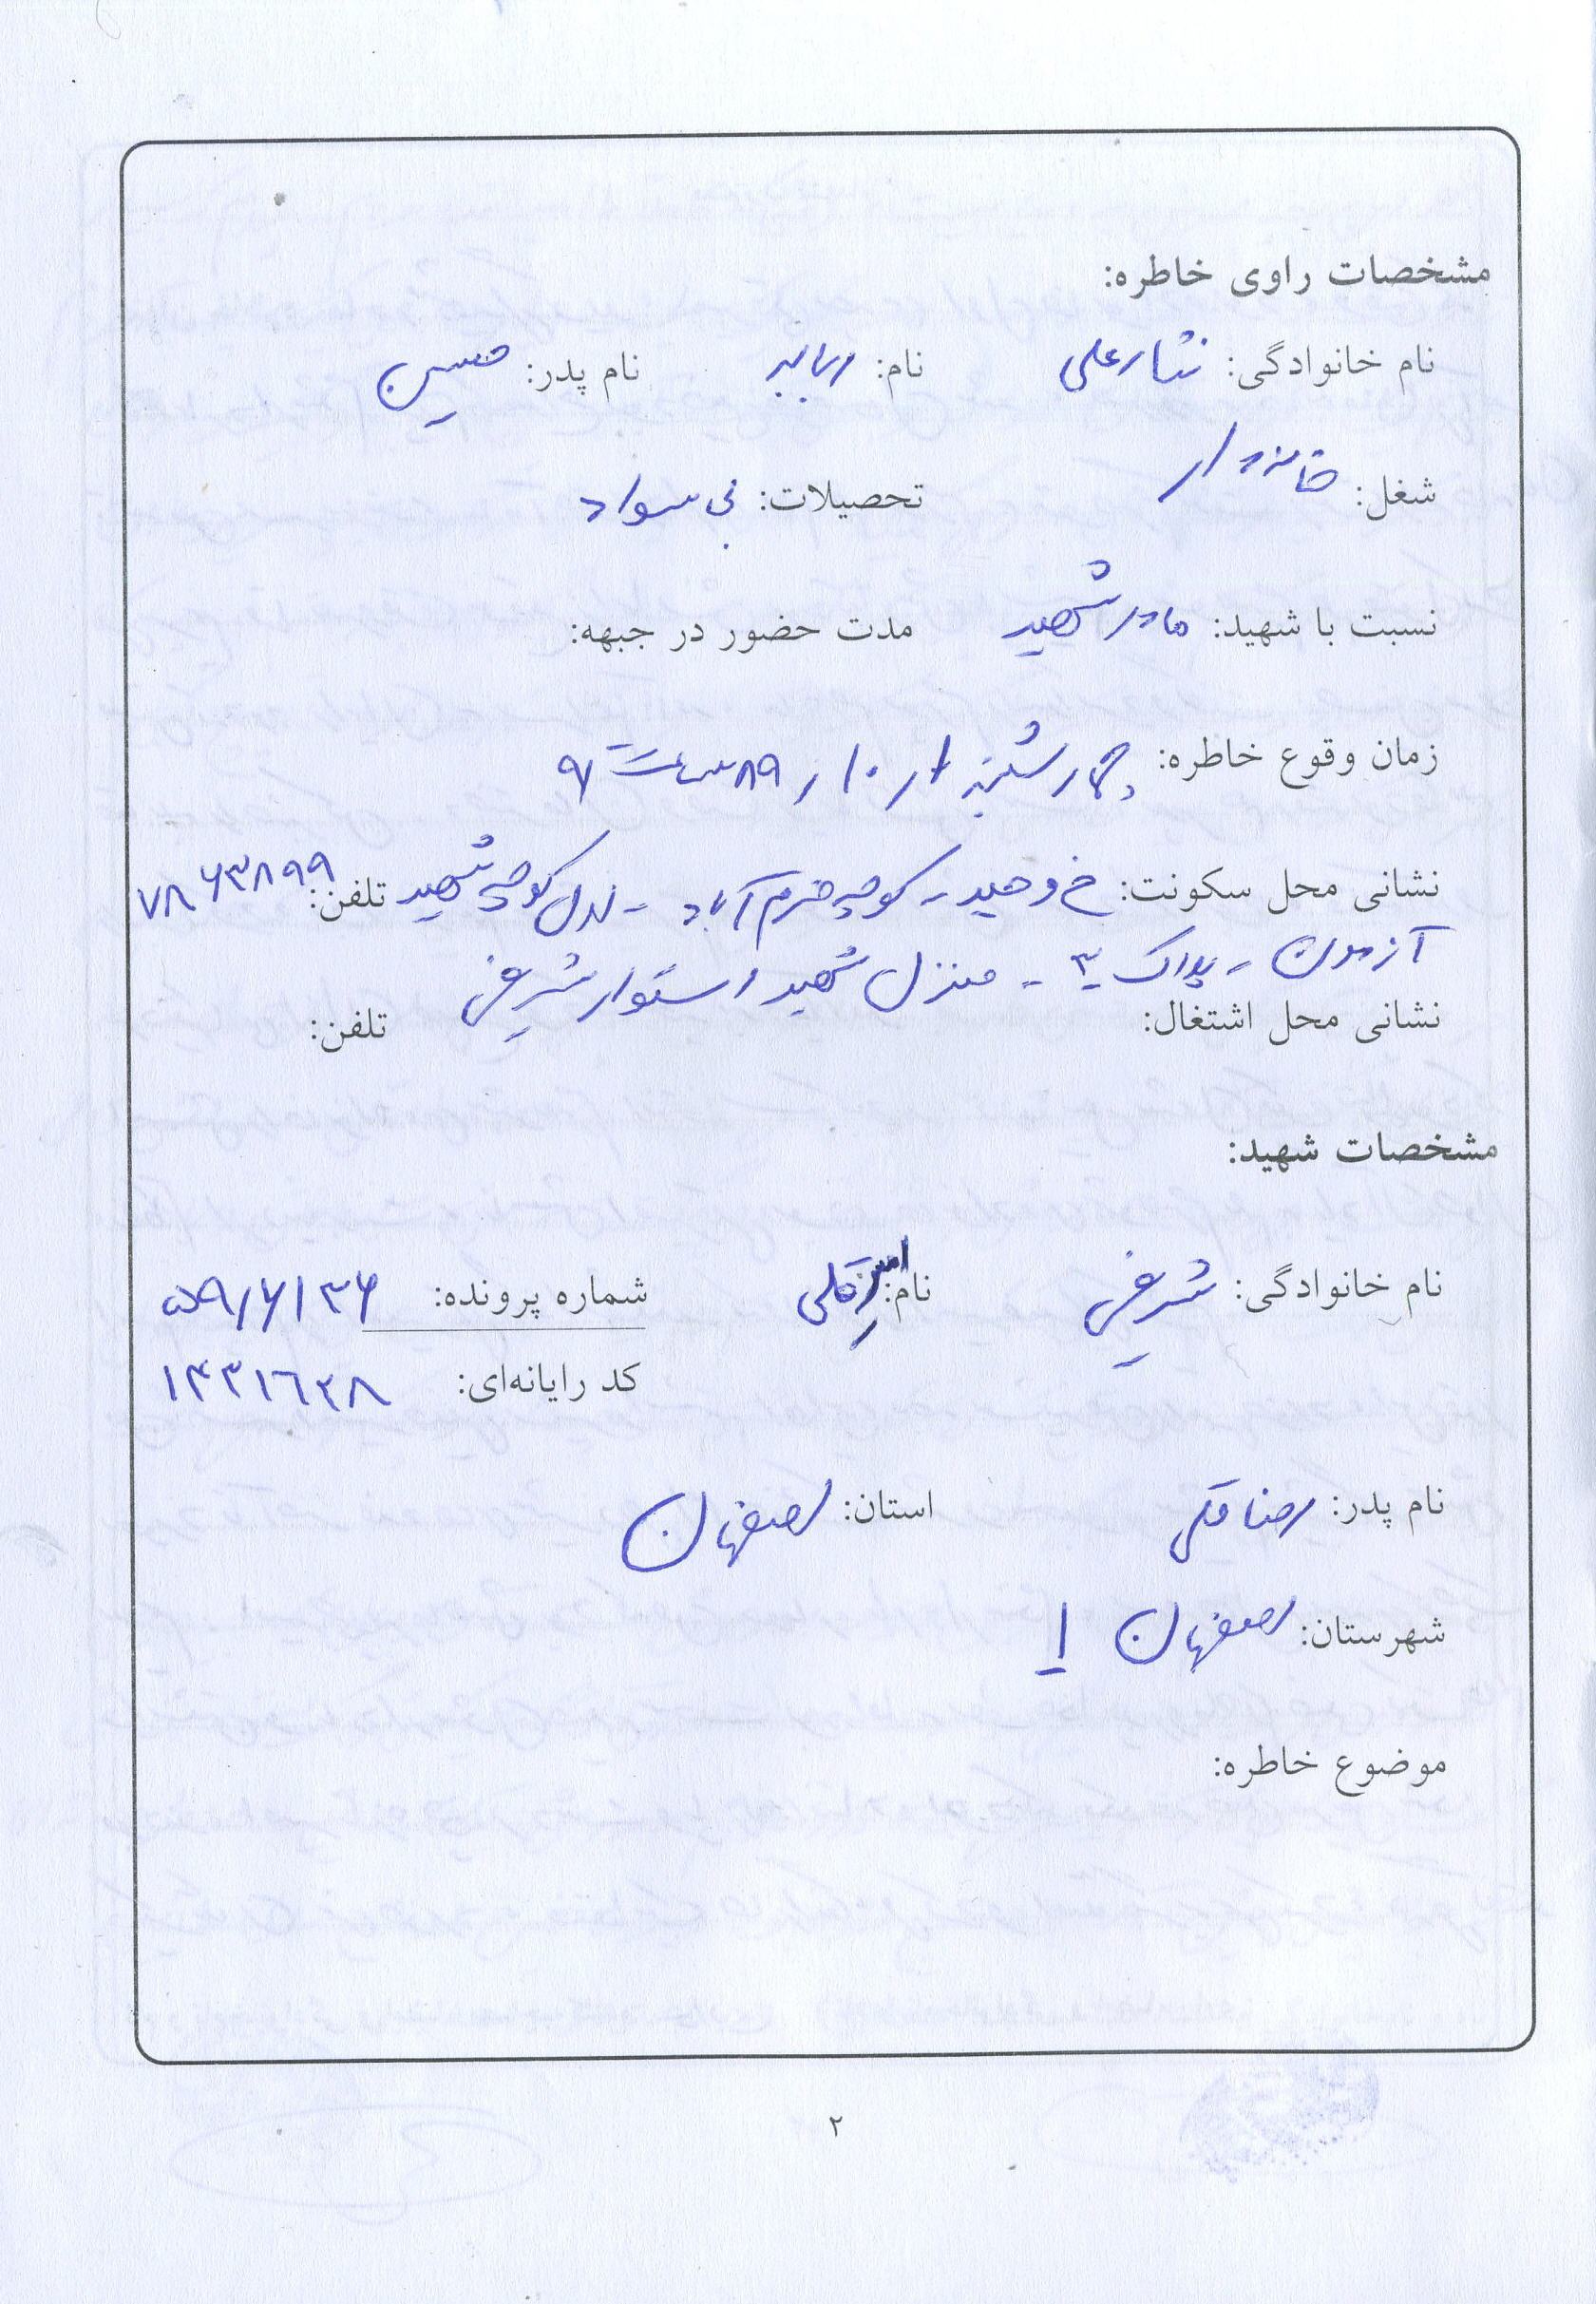 مشخصات راوی خاطره:
نام خانوادگی: نثارعلی نام: ربابه نام پدر: حسین
شغل: خانه دار تحصیلات: بی سواد
نسبت با شهید: مادر شهید مدت حضور در جبهه:
زمان وقوع خاطره: چهارشنبه ۱۰/۱/ ۸۹ ساعت ۹
نشانی محل سکونت: خ وحید - کوچه خرم آباد - اول کوچه شهید تلفن: ۷۸۶۳۸۹۹
آزمون - پلاک ۳ - منزل شهید استوار شریفی
نشانی محل اشتغال: تلفن:
مشخصات شهید:
نام خانوادگی: شریفی نام: امیرقلی شماره پرونده: ۵۹/۶/۳۶
کد رایانه‌ای: ۱۴۳۱۶۲۸
نام پدر: رضاقلی استان: اصفهان
شهرستان: اصفهان ۱
موضوع خاطره:
۲